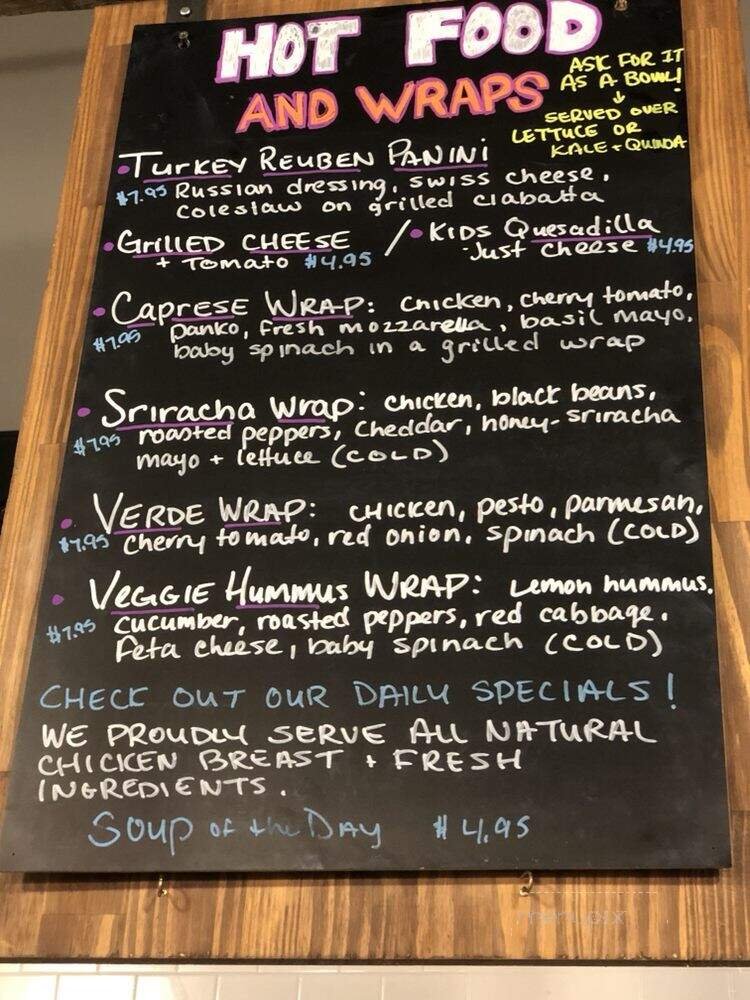 HOT FOOD
AND WRAPS
ASK FOR IT
AS A BOWL!
↓
SERVED OVER
LETTUCE OR
KALE + QUINOA
• TURKEY REUBEN PANINI
$7.95 Russian dressing, swiss cheese,
coleslaw on grilled ciabatta
• GRILLED CHEESE / • KIDS Quesadilla
+ Tomato $4.95 - Just cheese $4.95
• CAPRESE WRAP: Chicken, cherry tomato,
$7.95 panko, fresh mozzarella, basil mayo,
baby spinach in a grilled wrap
• Sriracha Wrap: chicken, black beans,
$7.95 roasted peppers, cheddar, honey-sriracha
mayo + lettuce (COLD)
• VERDE WRAP: CHICKEN, pesto, parmesan,
$7.95 cherry tomato, red onion, spinach (COLD)
• VEGGIE HUMMUS WRAP: Lemon hummus,
$7.95 cucumber, roasted peppers, red cabbage,
feta cheese, baby spinach (COLD)
CHECK OUT OUR DAILY SPECIALS!
WE PROUDLY SERVE ALL NATURAL
CHICKEN BREAST + FRESH
INGREDIENTS.
SOUP of the DAY $4.95